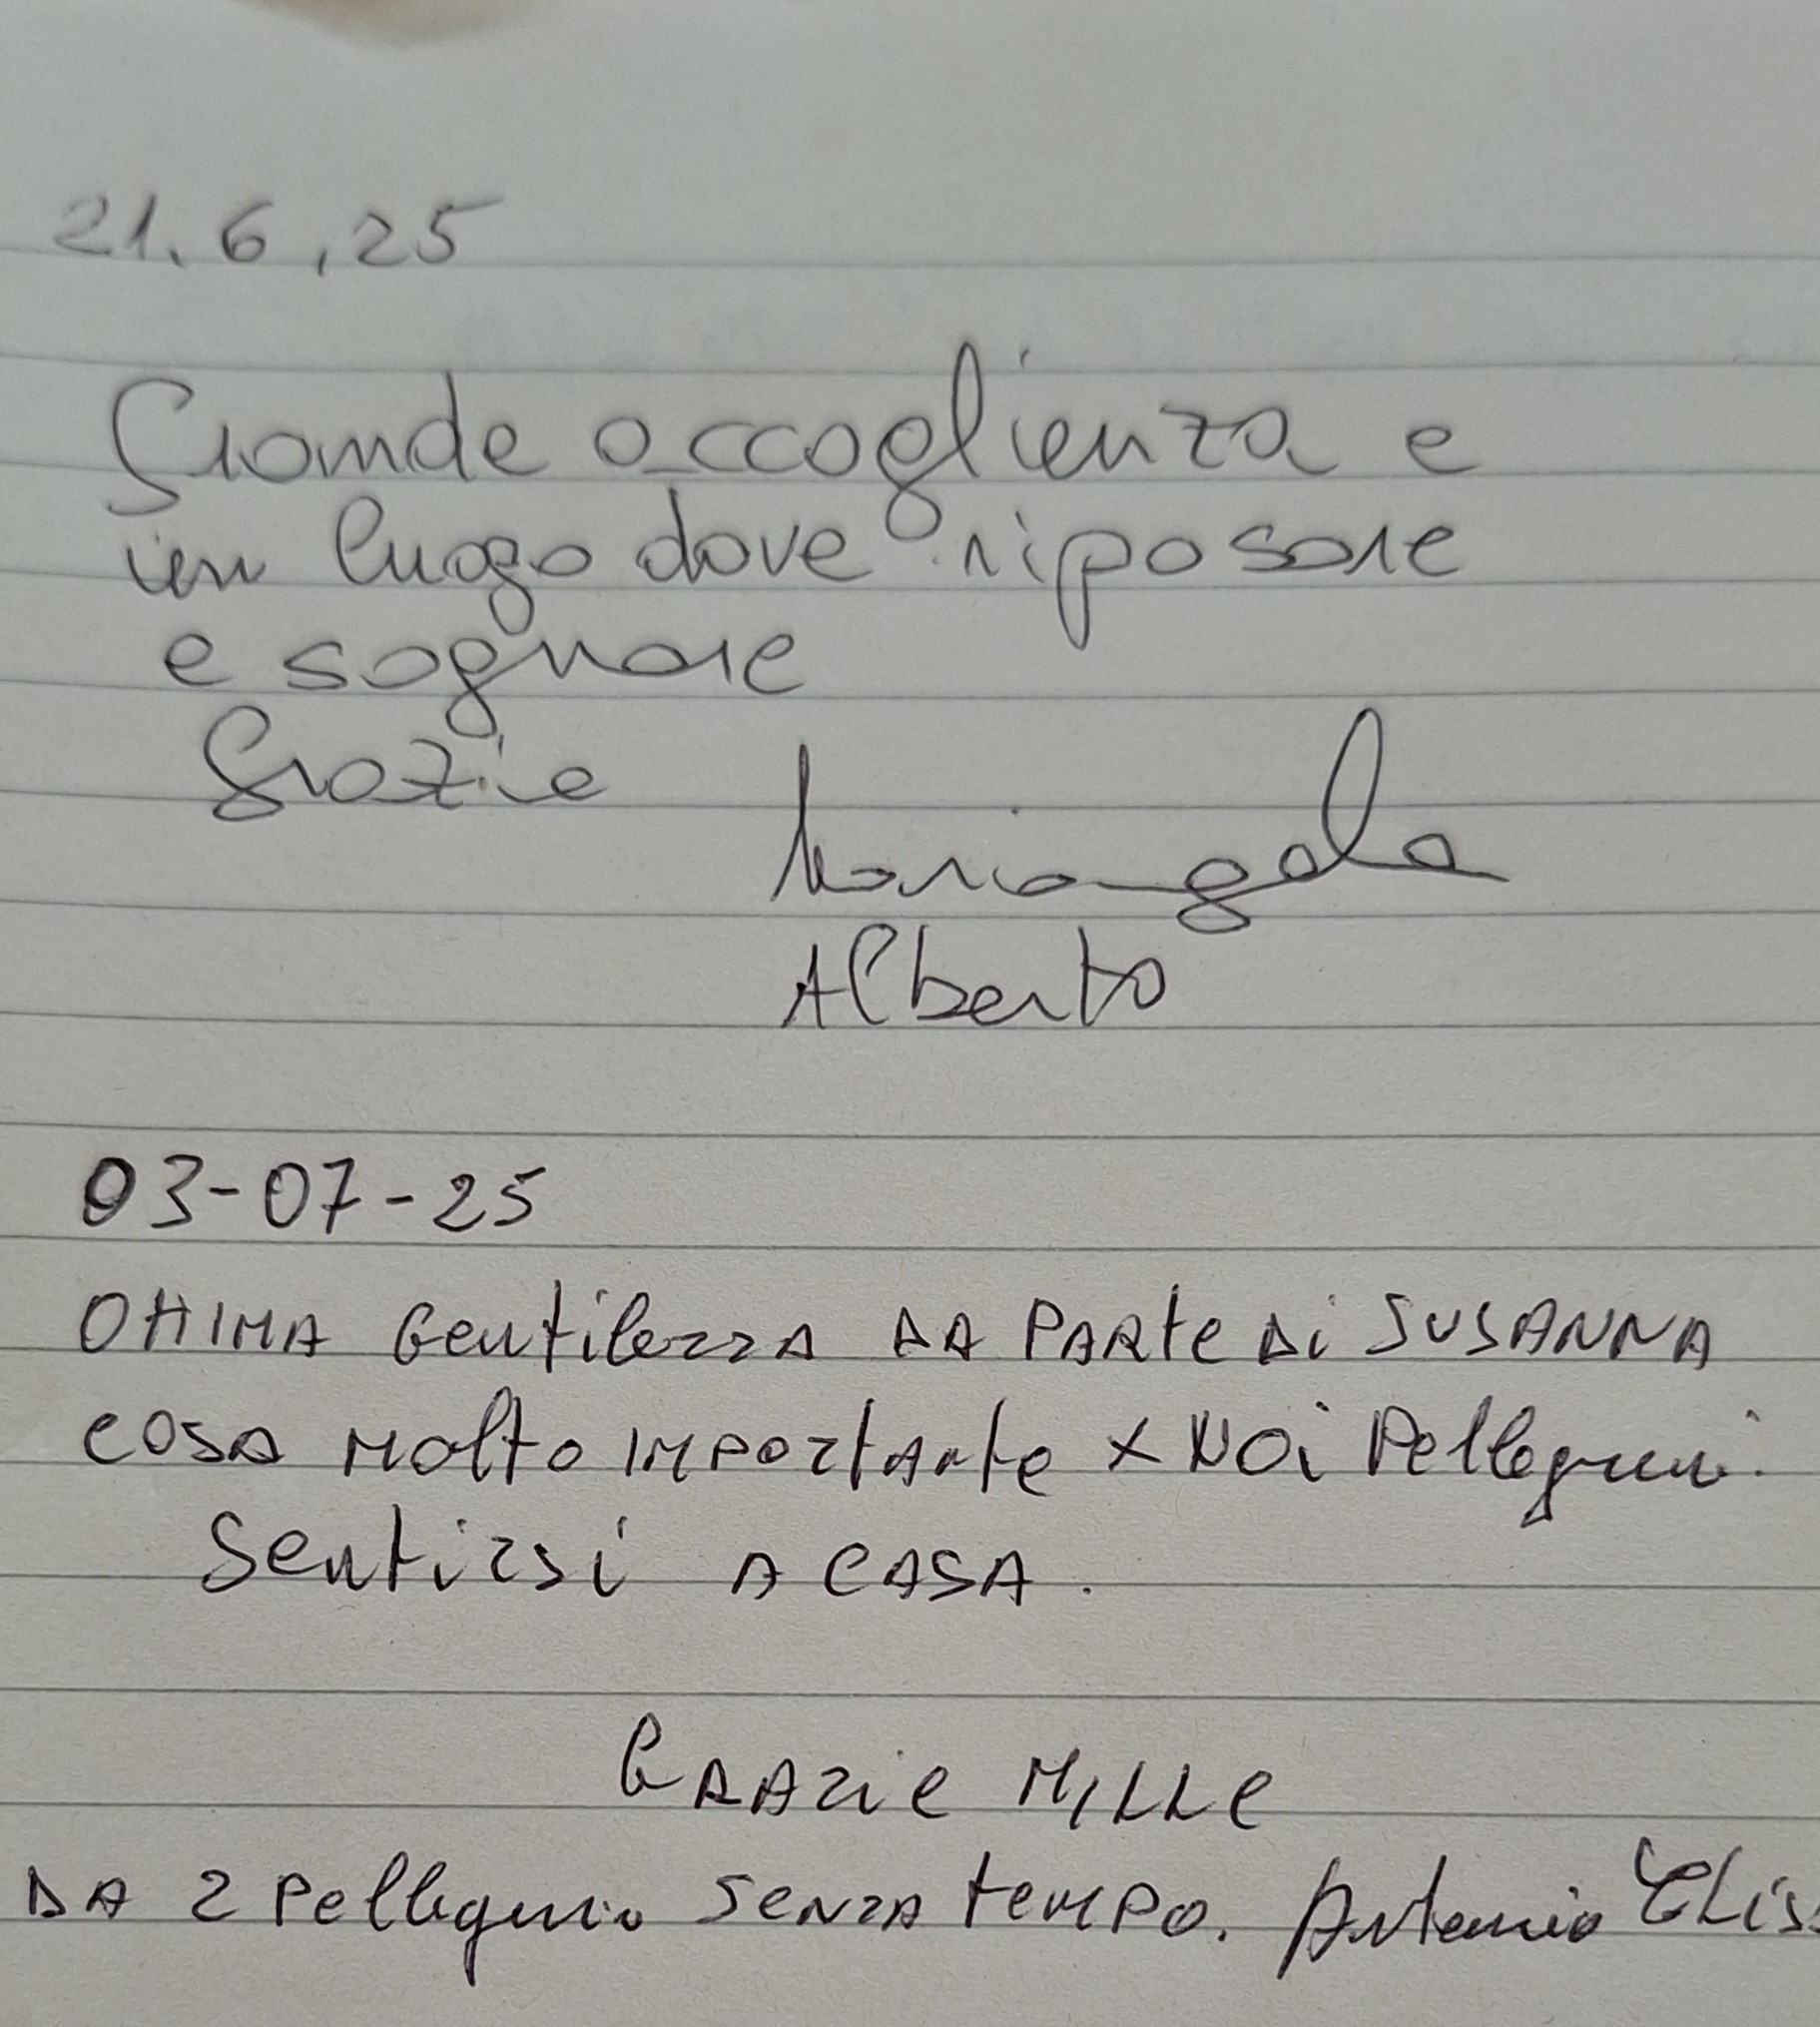 21.6.25
Grande accoglienza e
un luogo dove riposare
e sognare
Grazie
Mariangela
Alberto
03-07-25
OTTIMA Gentilezza DA PARte Di SUSANNA
COSA MOLTO IMPORTANte X NOi Pellegrini.
Sentirsi A CASA.
GRAZie MILLe
DA 2 Pellegrini SENZA teMPO. Antonio